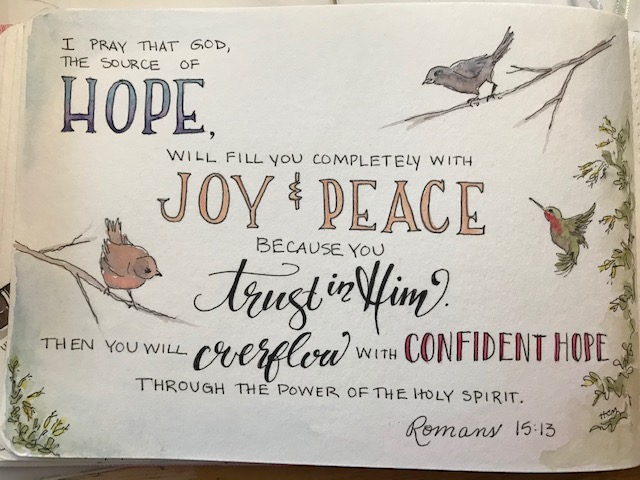 I PRAY THAT GOD,
THE SOURCE OF
HOPE,
WILL FILL YOU COMPLETELY WITH
JOY & PEACE
BECAUSE YOU
trust in Him.
THEN YOU WILL overflow WITH CONFIDENT HOPE
THROUGH THE POWER OF THE HOLY SPIRIT.
HCM
Romans 15:13